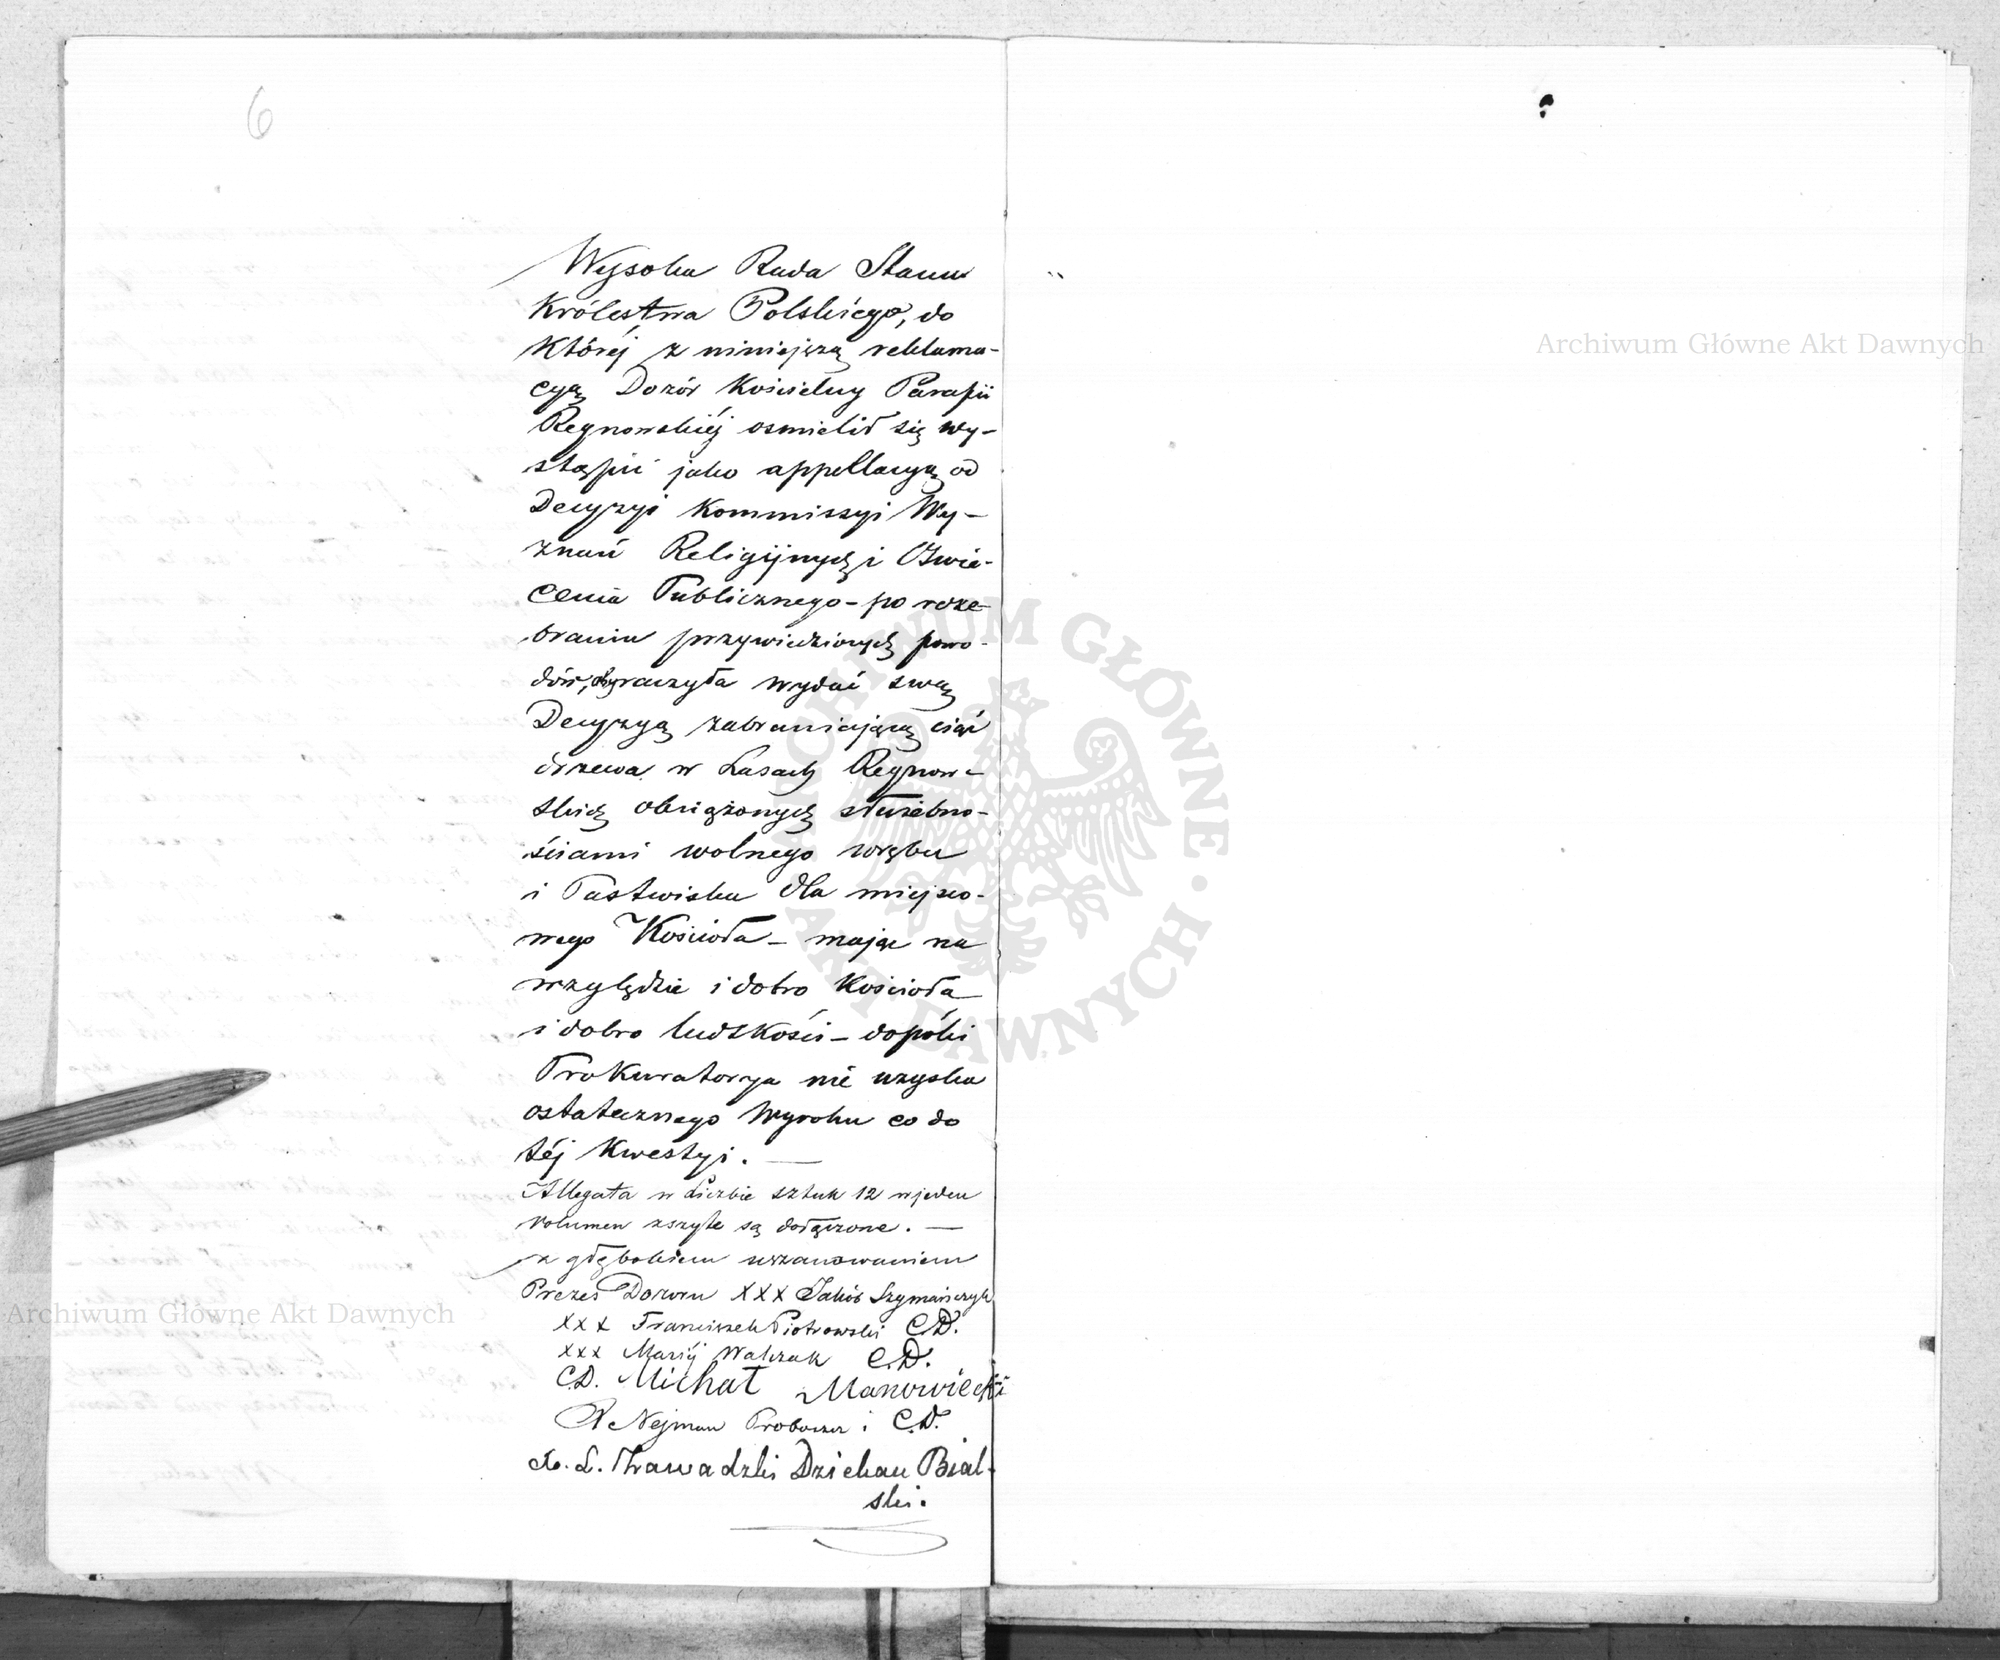 6
Wysoka Rada Stanu
Królestwa Polskiego, do
Któréj z niniejszą reklama-
cyą Dozór Kościelny Parafii
Regnowskiéj osmielił się wy-
stąpić jako appellacyą od
Decyzyi Kommissyi Wy-
znań Religijnych i Oświe-
cenia Publicznego – po roze-
braniu przywiedzionych powo-
dów, wydać swą
Decyzyą zabraniającą ciąć
drzewa w Lasach Regnow-
skich obciążonych służebno-
ściami wolnego wrębu
i Pastwiska dla miejsco-
wego Kościoła – mając na
względzie i dobro Kościoła
i dobro ludzkości – dopóki
Prokuratorya nie uzyska
ostatecznego Wyroku co do
téj Kwestyi. —
Allegata w Liczbie sztuk 12 w jeden
volumen zszyte są dołączone. —
z głębokiem uszanowaniem
Prezes Dozoru XXX Jakób Szymańczyk
XXX Franciszek Piotrowski C.D.
XXX Maciéj Walczak C.D.
C.D. Michał Manowiecki
X Nejman Proboszcz i C.D.
X. L. Zawadzki Dziekan Bial-
ski.
Archiwum Główne Akt Dawnych
Archiwum Główne Akt Dawnych
ARCHIWUM GŁÓWNE AKT DAWNYCH